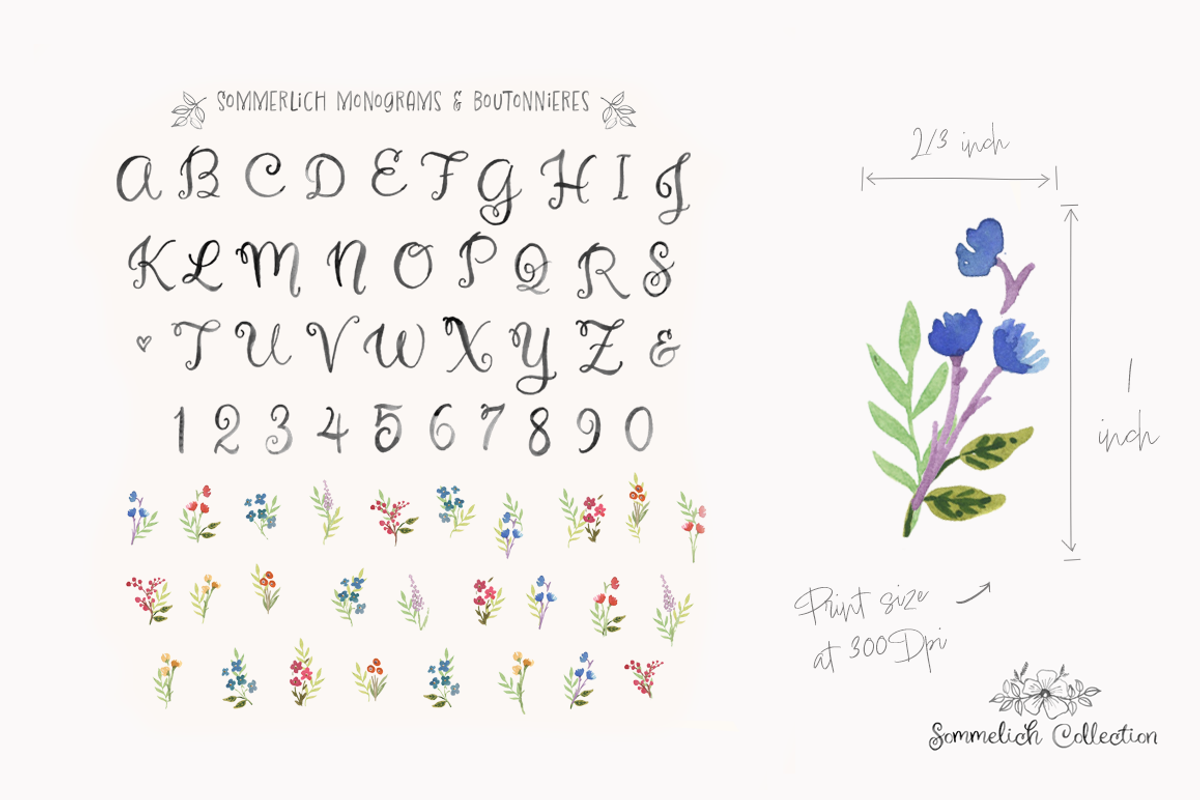 SOMMERLiCH MONOGRAMS & BOUTONNiERES
A B C D E F G H I J
K L M N O P Q R S
T U V W X Y Z &
1 2 3 4 5 6 7 8 9 0
2/3 inch
1
inch
Print size
at 300Dpi
Sommelich Collection